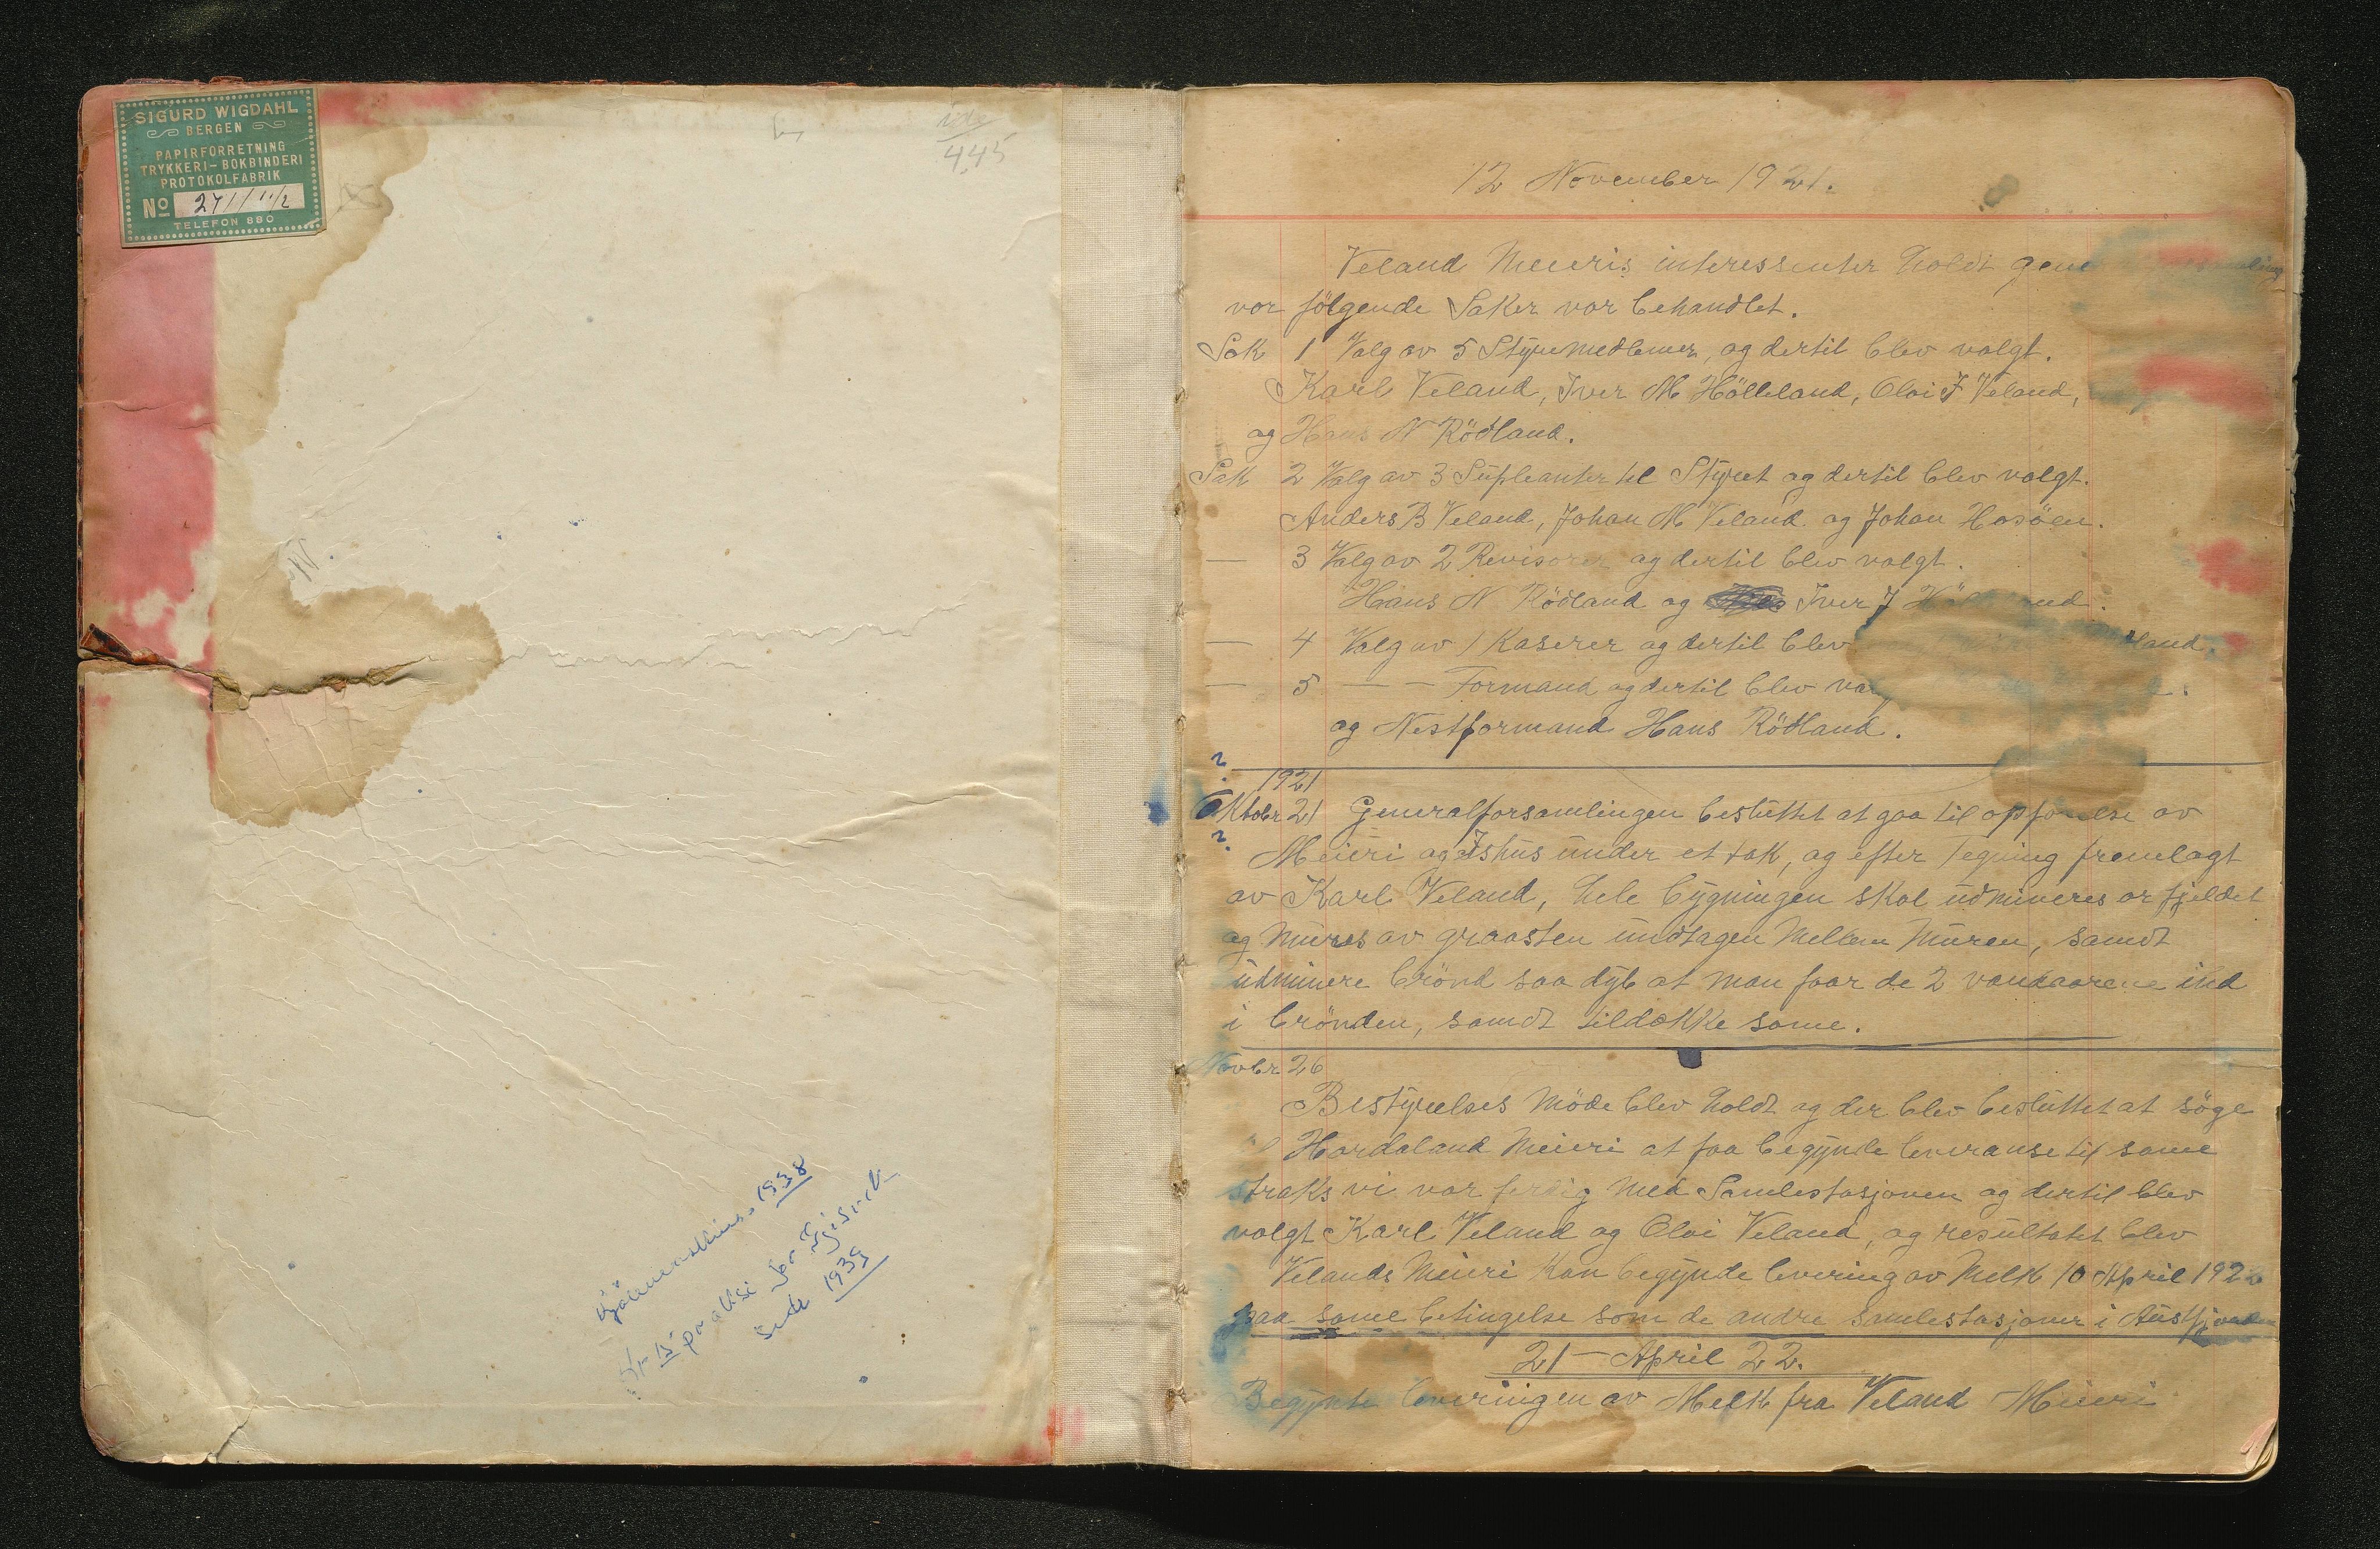 SIGURD WIGDAHL
BERGEN
PAPIRFORRETNING
TRYKKERI-BOKBINDERI
PROTOKOLFABRIK
No
TELEFON 880
4,45
1938
1939
12 November 1921.
Veland Meieris interessenter holdt
vor følgende Saker var behandlet.
Sak 1 Valg av 5 Styremedlemer, og dertil blev valgt.
Karl Veland, Iver M Hölleland, Oloi J Veland,
og Hans N Rödland.
Sak 2 Valg av 3 Supleanter til Styret og dertil blev valgt.
Anders B Veland, Johan M Veland og Johan Hosöen.
— 3 Valg av 2 Revisorer og dertil blev valgt.
Hans N Rödland og Iver J
— 4 Valg av 1 Kaserer og dertil blev
— 5 — — Formand og dertil blev
og Nestformand Hans Rödland.
?
1921
Oktobr 21 Generalforsamlingen besluttet at gaa til opförelse av
?
Meieri og Ishus under et tak, og efter Tegning fremlagt
av Karl Veland, hele bygningen skal udmineres or fjeldet
og mures av graasten undtagen Mellem Muren, samdt
udminere brönd saa dyb at man faar de 2 vandaarene ind
i brönden, samdt tildække same.
Novbr 26
Bestyrelses Möde blev holdt og der blev besluttet at söge
Hordaland Meieri at faa begynde leveranse til same
straks vi var ferdig med Samlestasjonen og dertil blev
valgt Karl Veland og Oloi Veland, og resultatet blev
Velands Meieri kan begynde levering av Melk 10 April 1922
paa same betingelse som de andre samlestasjoner i
21 — April 22.
Begynte leveringen av Melk fra Veland Meieri